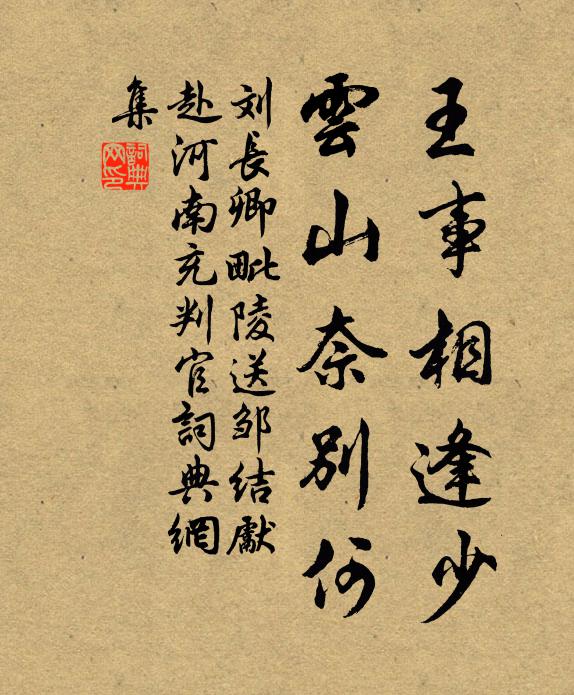 王事相逢少
雲山奈別何
刘長卿毗陵送邹結獻
赴河南充判官詞典網
集
詞典網印